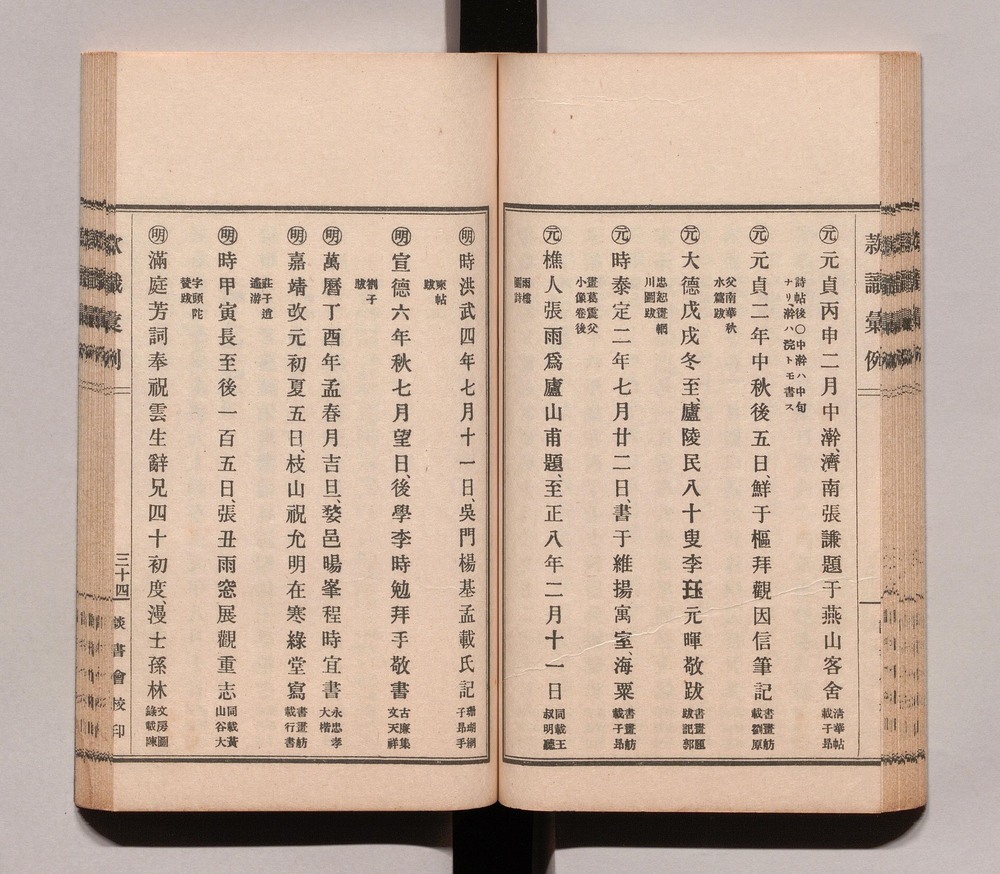 款識彙例
元 元貞丙申二月中澣、濟南張謙題于燕山客舍
清華帖
載子昻
詩帖後〇中澣ハ中旬
ナリ、澣ハ浣トモ書ス
元 元貞二年中秋後五日、鮮于樞拜觀因信筆記
書畫舫
載劉原
父南華秋
水篇跋
元 大德戊戌冬至、廬陵民八十叟李珏元暉敬跋
書畫題
跋記郭
忠恕畫輞
川圖跋
元 時泰定二年七月廿二日、書于維揚寓室、海粟
書畫舫
載子昻
畫葛震父
小像卷後
元 樵人張雨爲廬山甫題、至正八年二月十一日
同載王
叔明聽
雨樓
圖詩
明 時洪武四年七月十一日、吳門楊基孟載氏記
珊瑚網
子昻手
柬帖
跋
明 宣德六年秋七月望日、後學李時勉拜手敬書
古廉集
文天祥
劉子
跋
明 萬曆丁酉年孟春月吉旦、婺邑暘峯程時宜書
永忠孝
大楷
明 嘉靖改元初夏五日、枝山祝允明在寒綠堂寫
書畫舫
載行書
莊子逍
遙游
明 時甲寅長至後一百五日、張丑雨窓展觀重志
同載黃
山谷大
字頭陀
贊跋
明 滿庭芳詞奉祝雲生辭兄四十初度漫士孫林
文房圖
錄載陳
三十四
談書會校印